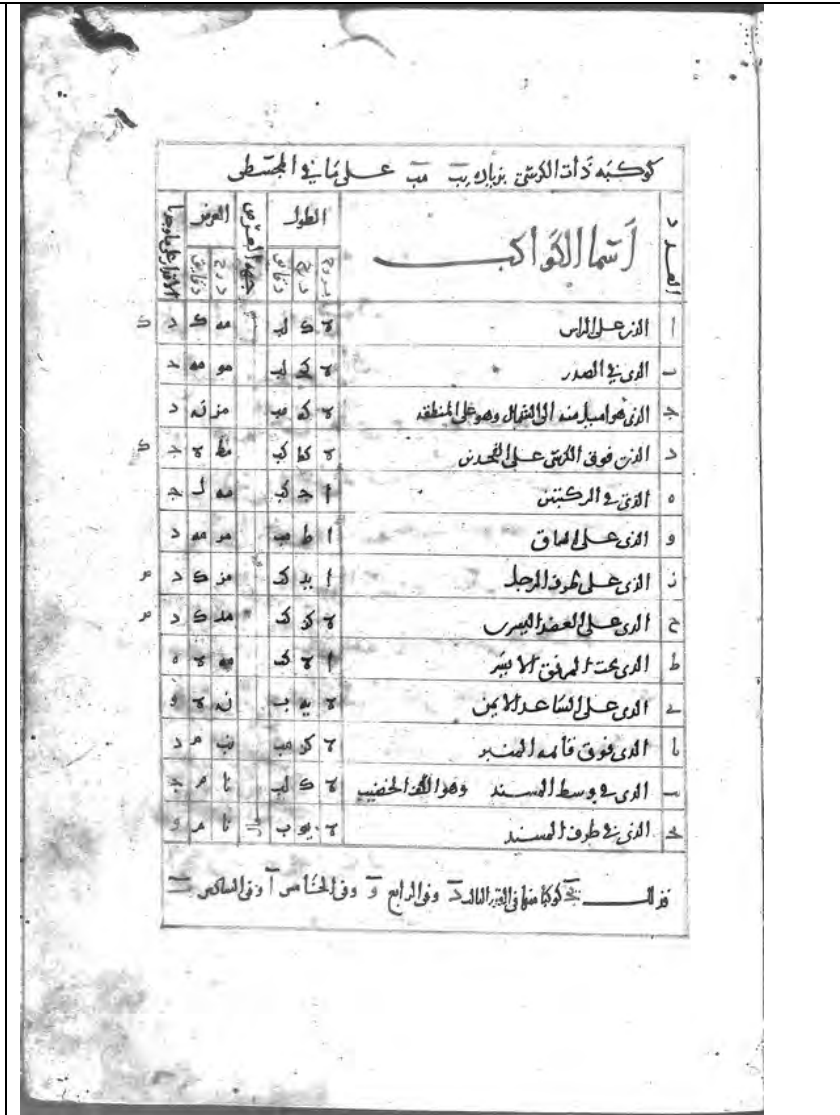 كوكبه ذات الكرسى بزيادة يب مب على ما في المجسطى
العدد اسما الكواكب الطول جهة العرض العرض الاقدار على ما وجدنا
بروج درج دقايق درج دقايق
ا الذى على الراس ه ك لب مه ك د ك
ب الذى في الصدر ه كج لب مو مه ج
ج الذى هو اميل منه الى الشمال وهو على المنطقه ه كه مب مز ن د
د الذى فوق الكرسى على الفخدين ه كط كب مط ه ج ك
ه الذى في الركبتين ا ج كب مه ل ج
و الذى على الساق ا ط مب مز مه د
ز الذى على طرف الرجل ا يد كب مز ك د م
ح الذى على العضد اليسرى ه كز كب مد ك د م
ط الذى تحت المرفق الايسر ا ه كب مه ه ه
ى الذى على الساعد الايمن ه يه ب ن ه و
يا الذى فوق قائمه المنبر ه كز مب نب م د
يب الذى في وسط المسند وهو الكف الخضيب ه ك لب نا م ج
يج الذى في طرف المسند ه يو ب نا م و
فذلك يج كوكبا منها في القدر الثالث د وفي الرابع و وفي الخامس ا وفي السادس ب